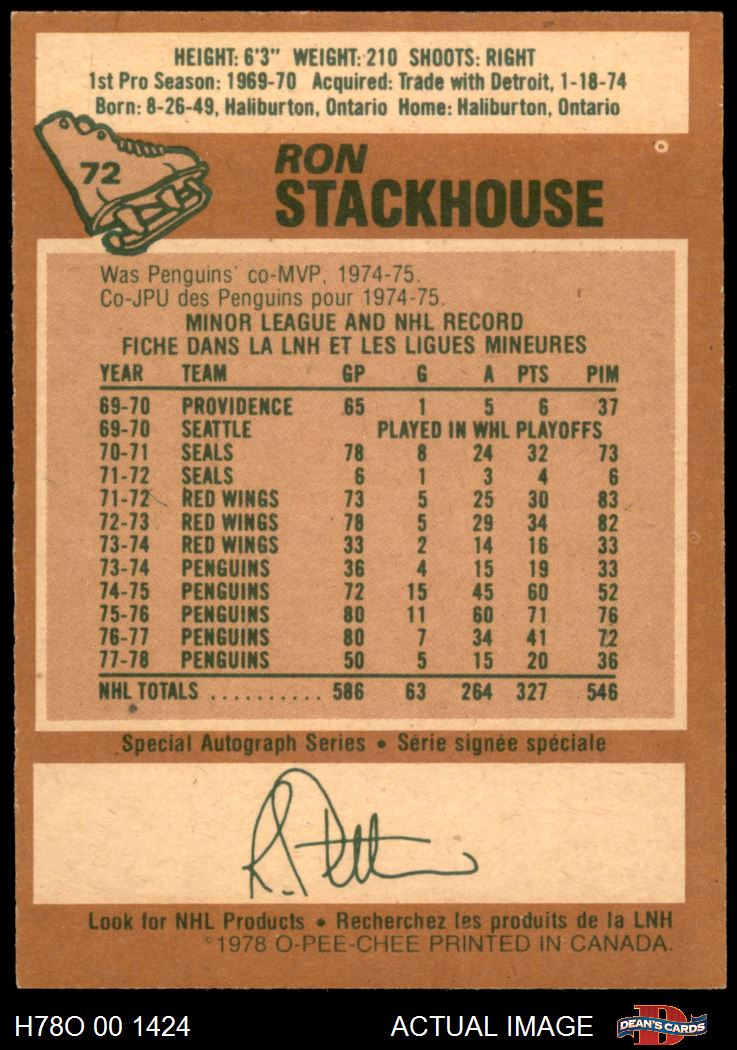 HEIGHT: 6'3" WEIGHT: 210 SHOOTS: RIGHT
1st Pro Season: 1969-70 Acquired: Trade with Detroit, 1-18-74
Born: 8-26-49, Haliburton, Ontario Home: Haliburton, Ontario
72
RON
STACKHOUSE
Was Penguins' co-MVP, 1974-75.
Co-JPU des Penguins pour 1974-75.
MINOR LEAGUE AND NHL RECORD
FICHE DANS LA LNH ET LES LIGUES MINEURES
YEAR TEAM GP G A PTS PIM
69-70 PROVIDENCE 65 1 5 6 37
69-70 SEATTLE PLAYED IN WHL PLAYOFFS
70-71 SEALS 78 8 24 32 73
71-72 SEALS 6 1 3 4 6
71-72 RED WINGS 73 5 25 30 83
72-73 RED WINGS 78 5 29 34 82
73-74 RED WINGS 33 2 14 16 33
73-74 PENGUINS 36 4 15 19 33
74-75 PENGUINS 72 15 45 60 52
75-76 PENGUINS 80 11 60 71 76
76-77 PENGUINS 80 7 34 41 72
77-78 PENGUINS 50 5 15 20 36
NHL TOTALS .......... 586 63 264 327 546
Special Autograph Series • Série signée spéciale
Look for NHL Products • Recherchez les produits de la LNH
©1978 O-PEE-CHEE PRINTED IN CANADA.
H78O 00 1424 ACTUAL IMAGE D DEAN'S CARDS